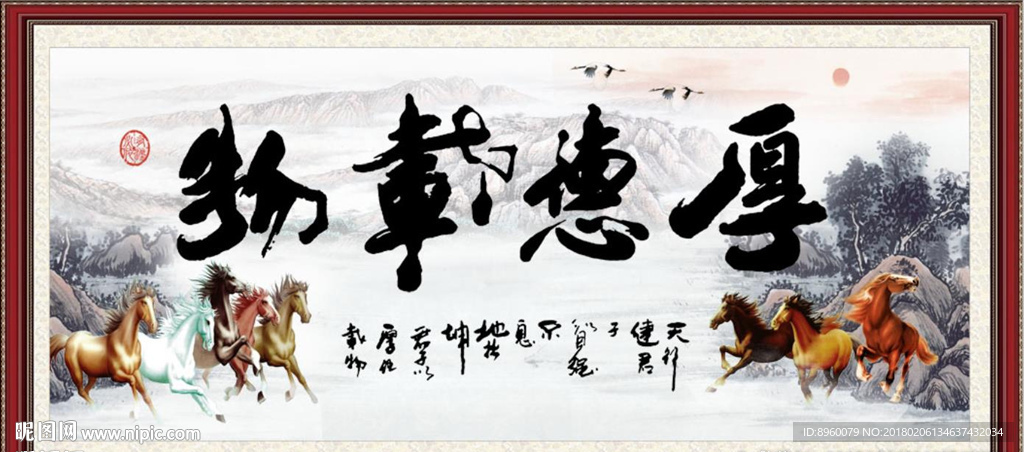 厚德載物
天行
健君
子
以自强
不
息
地势
坤
君子以
厚德
載物
昵图网 www.nipic.com
ID:8960079 NO:20180206134637432034